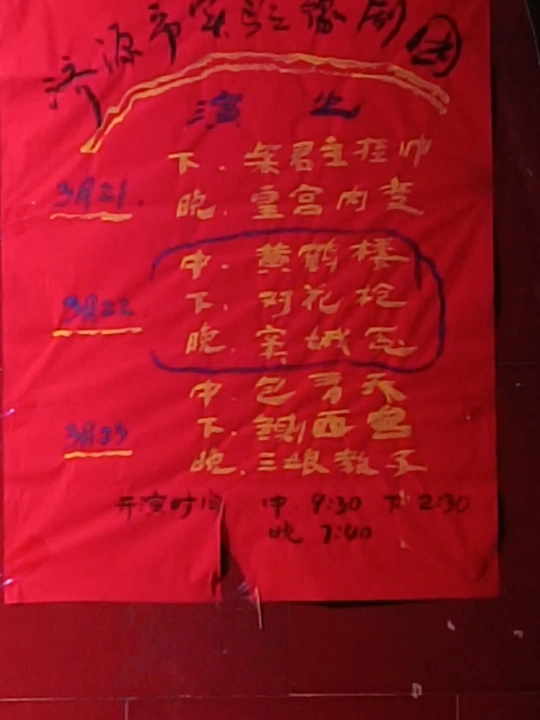 济源市实验豫剧团
演出
3月21. 下. 柴君主挂帅
晚. 皇宫内变
中. 黄鹤楼
3月22 下. 对花枪
晚. 窦娥冤
中. 包青天
3月23 下. 铡西宫
晚. 三娘教子
开演时间 中 9:30 下 2:30
晚 7:40